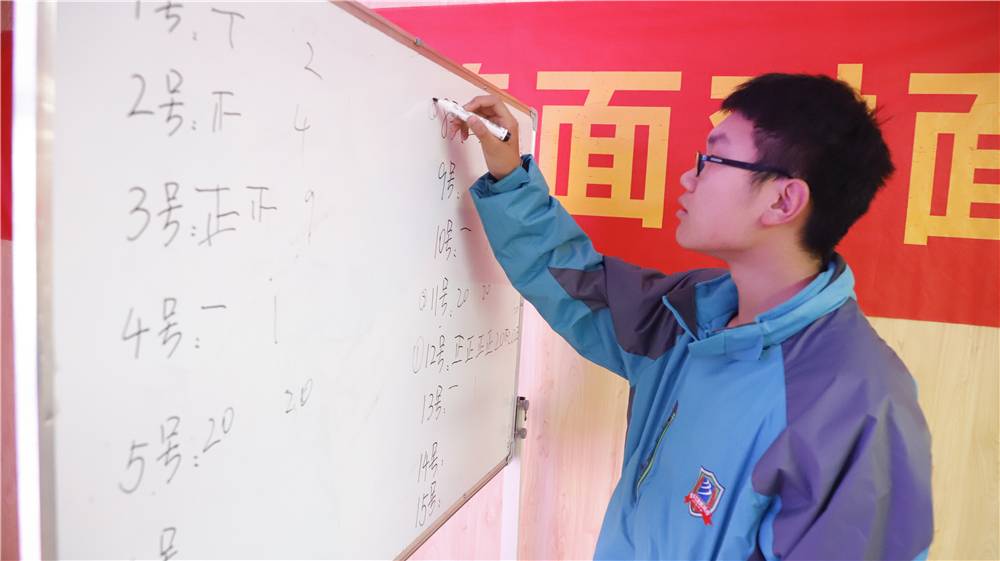 1号:
2
2号:正
4
3号:正正
9
4号:一
1
5号:20
20
号
9号:
10号:一
③11号:20 20
①12号:正正正正20
13号:一
14号:
15号:
面对面